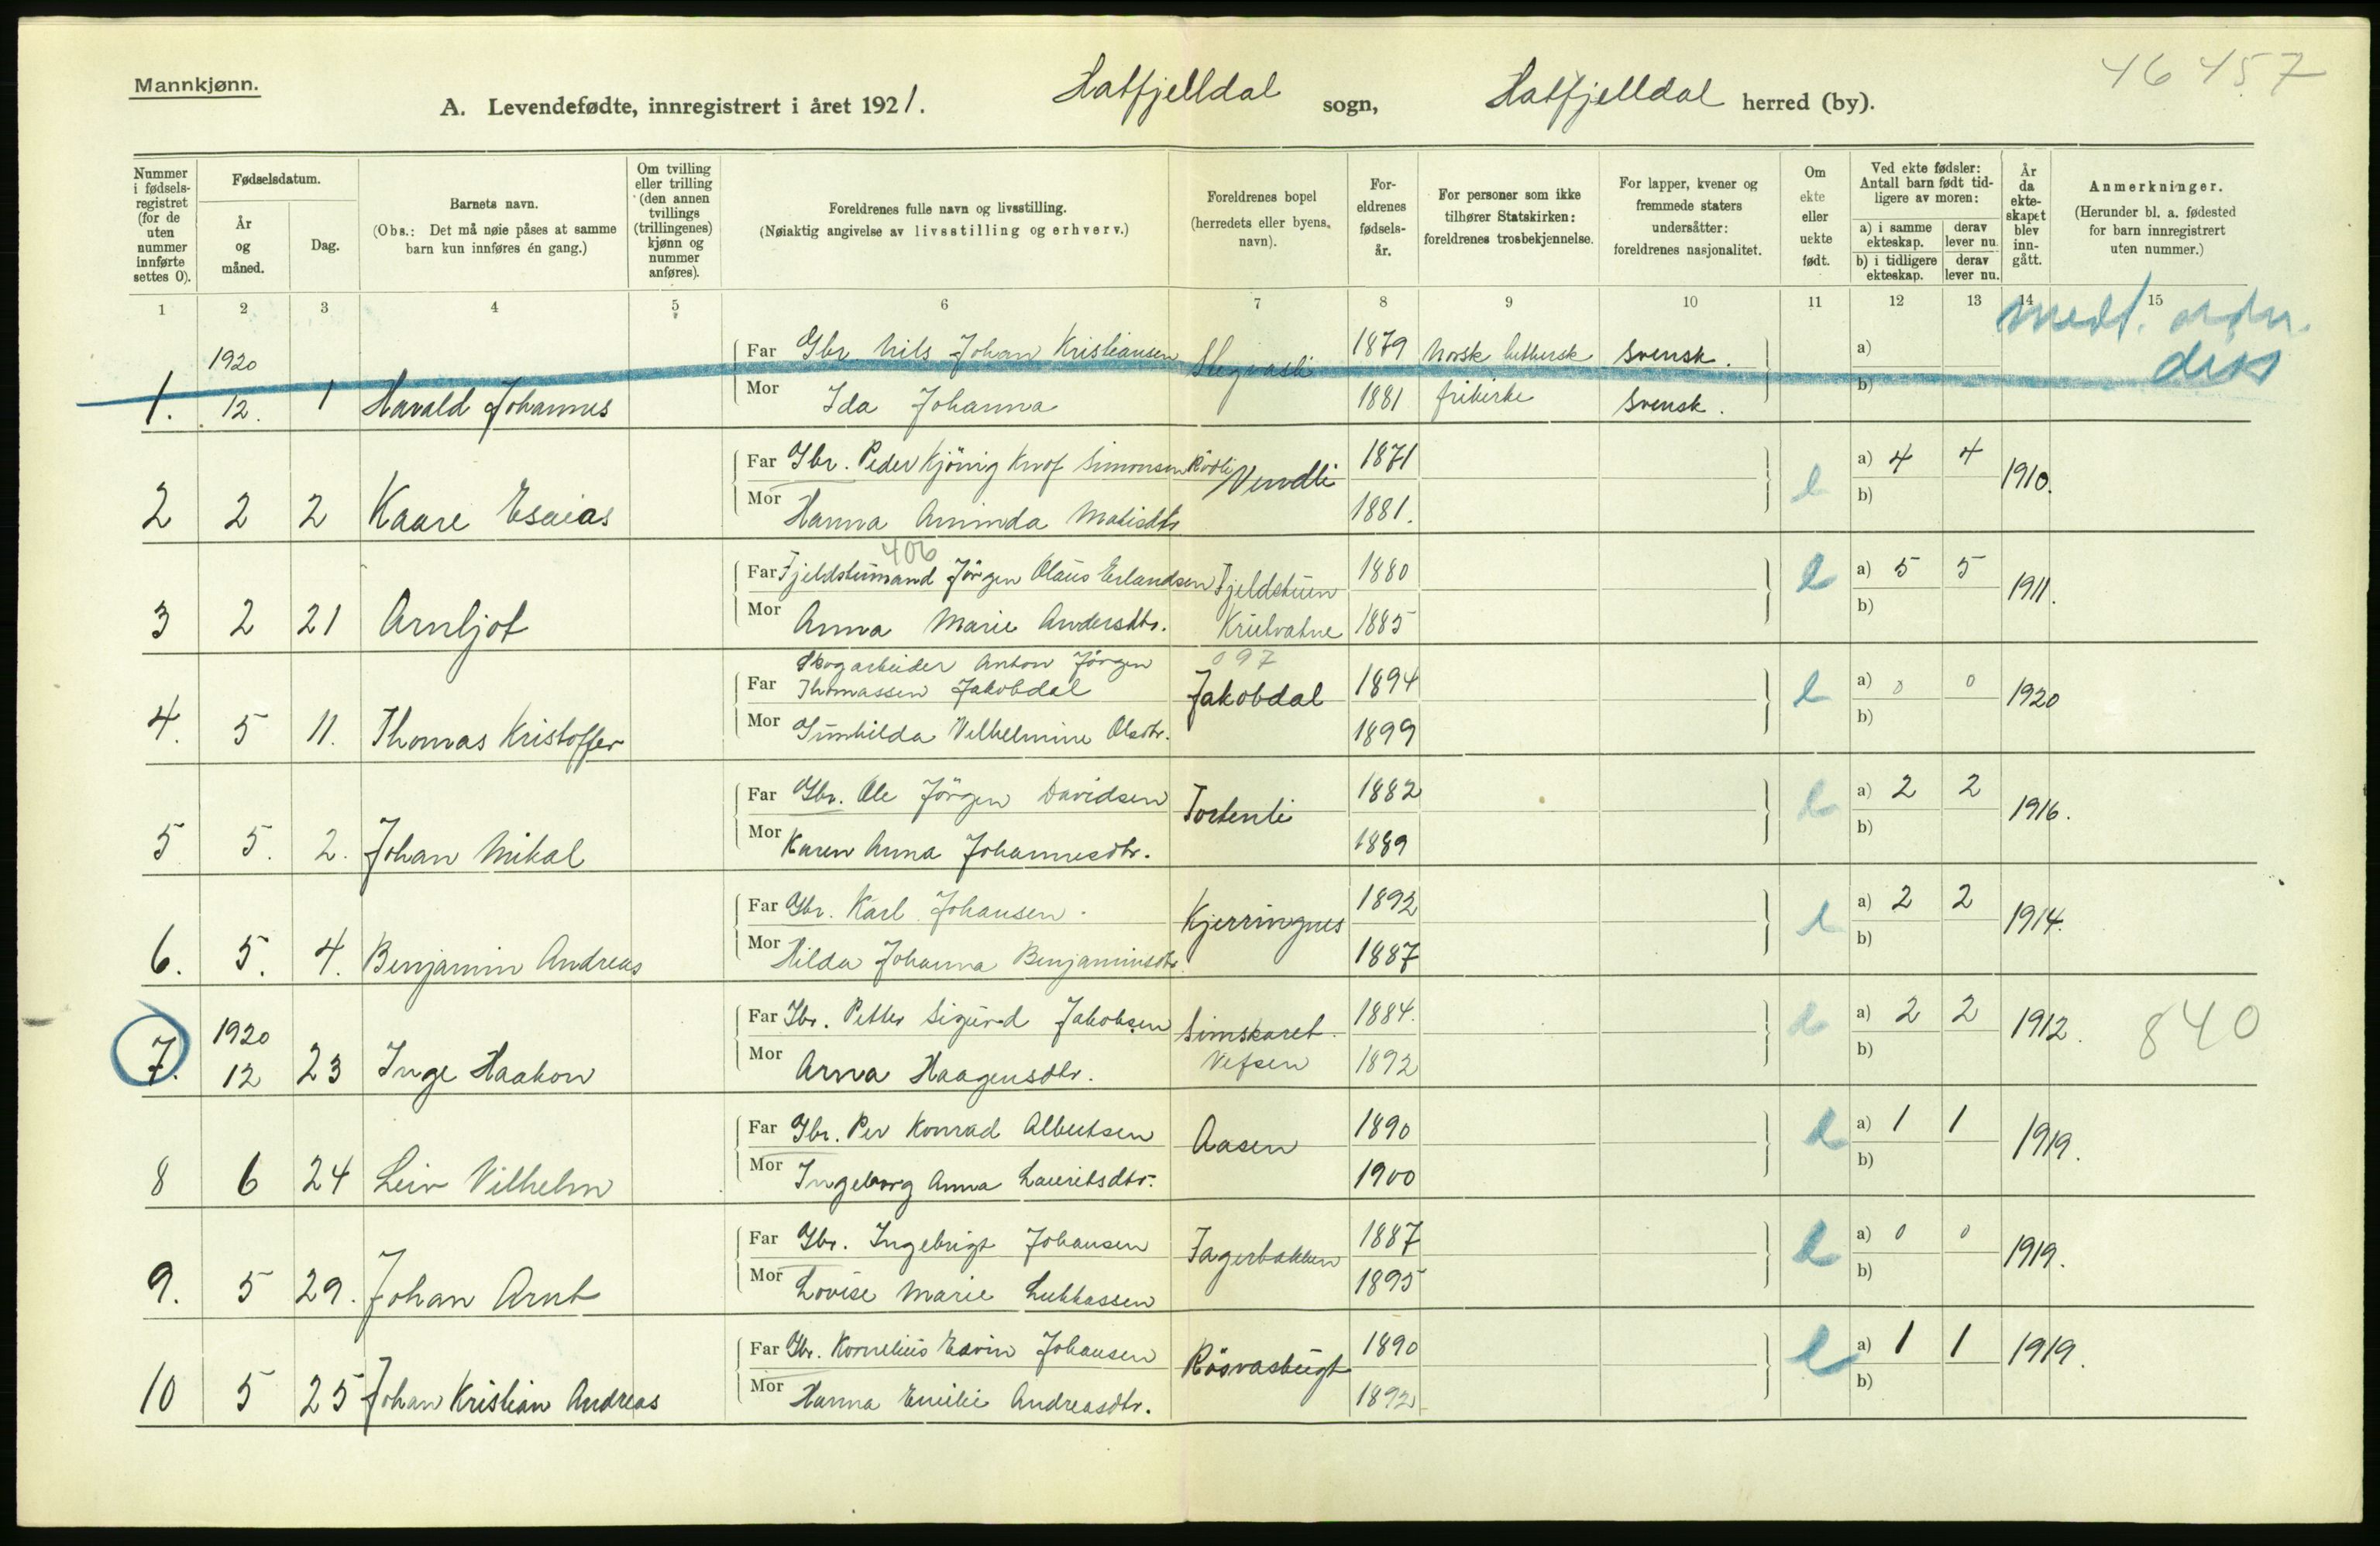 Mannkjønn.
46 457
A. Levendefødte, innregistrert i året 1921. Hatfjelldal sogn, Hatfjelldal herred (by).
Nummer i fødselsregistret (for de uten nummer innførte settes 0).
Fødselsdatum.
År og måned.
Dag.
Barnets navn.
(Obs.: Det må nøie påses at samme barn kun innføres én gang.)
Om tvilling eller trilling (den annen tvillings (trillingenes) kjønn og nummer anføres).
Foreldrenes fulle navn og livsstilling.
(Nøiaktig angivelse av livsstilling og erhverv.)
Foreldrenes bopel (herredets eller byens navn).
For-eldrenes fødsels-år.
For personer som ikke tilhører Statskirken: foreldrenes trosbekjennelse.
For lapper, kvener og fremmede staters undersåtter: foreldrenes nasjonalitet.
Om ekte eller uekte født.
Ved ekte fødsler: Antall barn født tidligere av moren:
a) i samme ekteskap. derav lever nu.
b) i tidligere ekteskap. derav lever nu.
År da ekte-skapet blev inn-gått.
Anmerkninger.
(Herunder bl. a. fødested for barn innregistrert uten nummer.)
1 2 3 4 5 6 7 8 9 10 11 12 13 14 15
medt. diss
1920
Far Gbr. Nils Johan Kristiansen 1879 Norsk luthersk Svensk. a)
1. 12. 1 Harald Johannes Mor Ida Johanna 1881 frikirke Svensk. b)
Far Gbr. Peder Kjönig Knof Simonsen 1871 a) 4 4 1910.
2 2 2 Kaare Esaias Mor Hanna Aminda 1881. b)
406
Far Fjeldstumand Jörgen Olaus Erlandsen Fjeldstuen 1880 e a) 5 5 1911.
3 2 21 Arnljot Mor Anna Marie Andersdtr. Krutvatne 1885 b)
Skogarbeider Anton Jörgen 097
Far Thomassen Jakobdal Jakobdal 1894 e a) 0 0 1920
4. 5 11. Thomas Kristoffer Mor Gunhilda Vilhelmine Olsdtr. 1899 b)
Far Gbr. Ole Jörgen Davidsen Tortenli 1882 e a) 2 2 1916.
5 5. 2. Johan Mikal Mor Karen Anna Johannesdtr. 1889 b)
Far Gbr. Karl Johansen. Kjerringnes 1892 e a) 2 2 1914.
6. 5. 4. Benjamin Andreas Mor Hilda Johanna Benjaminsdtr. 1887 b)
1920 Far Gbr. Petter Sigurd Jakobsen Simskaret. 1884. e a) 2 2 1912. 840
7. 12 23 Inge Haakon Mor Arna Haagensdtr. Vefsen 1892 b)
Far Gbr. Per Konrad Albertsen Aasen 1890 e a) 1 1 1919.
8 6 24 Leiv Vilhelm Mor Ingeborg Anna Lauritsdtr. 1900 b)
Far Gbr. Ingebrigt Johansen Fagerbakken 1887 e a) 0 0 1919.
9. 5 29. Johan Arnt Mor Lovise Marie Lukkassen 1895 b)
Far Gbr. Kornelius Edvin Johansen Rösvasbugt 1890 e a) 1 1 1919.
10 5 25 Johan Kristian Andreas Mor Hanna Emilie Andreasdtr. 1892 b)